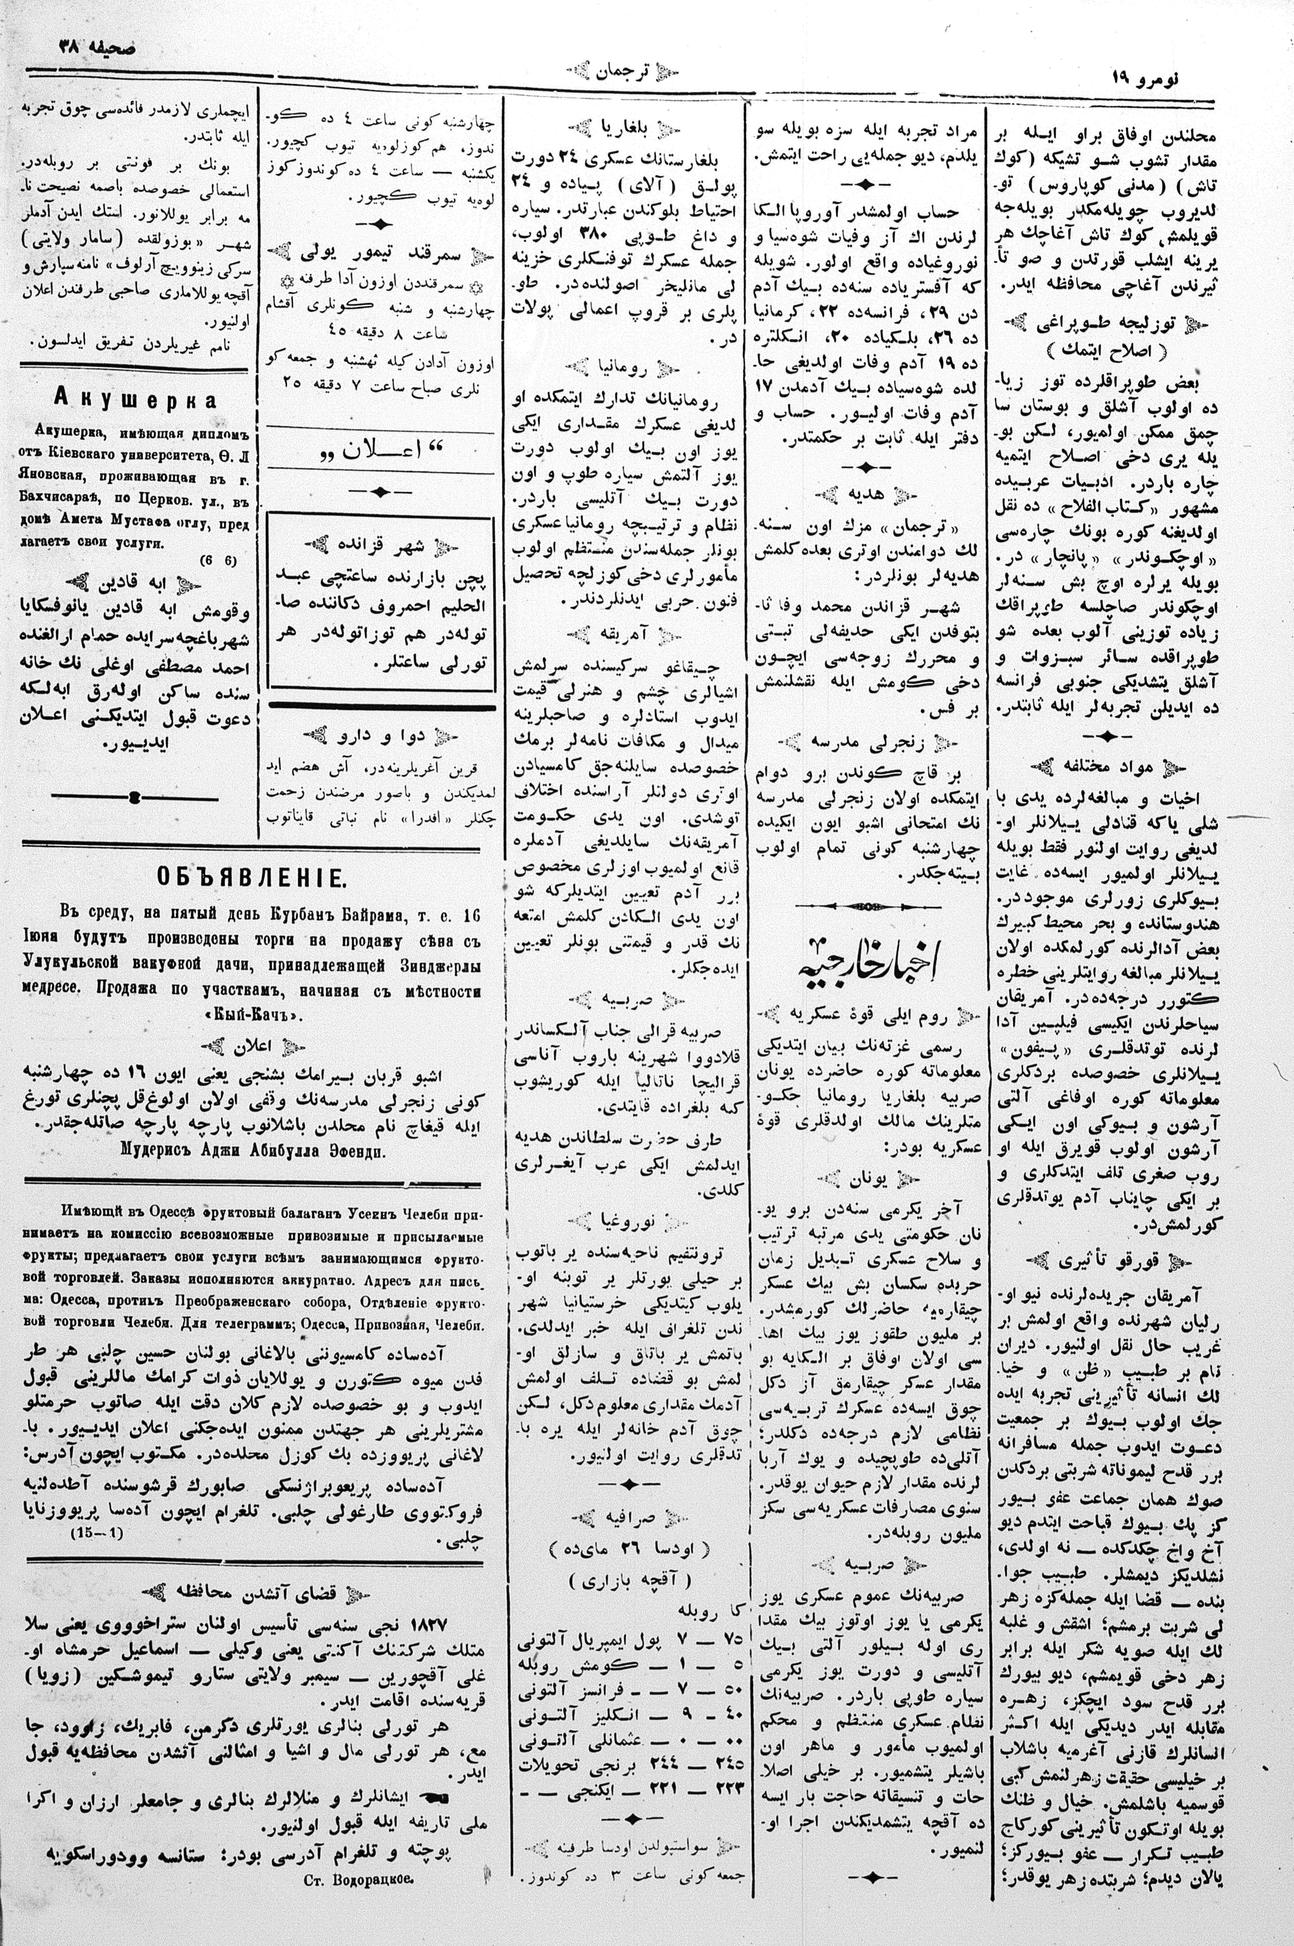 نومرو ١٩
ترجمان
صحیفه ٣٨
محلندن اوفاق براو ایله بر
مقدار تشوب شو تشیکه (كوك
تاش) (مدنی كوپاروس) تو-
لدیروب چویله‌مكدر بویله‌جه
قویلمش كوك تاش آغاچك هر
یرینه ایشلب قورتدن و صو تأ-
ثیرندن آغاچی محافظه ایدر.
توزلیجه طوپراغی
( اصلاح ایتمك )
بعض طوپراقلرده توز زیا-
ده اولوب آشلق و بوستان سا
چمق ممكن اولمیور، لكن بو-
یله یری دخی اصلاح ایتمیه
چاره باردر. ادبیات عربیده
مشهور «كتاب الفلاح» ده نقل
اولدیغنه كوره بونك چاره‌سی
«اوچكوندر» «پانچار» در.
بویله یرلره اوچ بش سنه‌لر
اوچكوندر صاچلسه طوپراقك
زیاده توزینی آلوب بعده شو
طوپراقده سائر سبزوات و
آشلق یتشدیكی جنوبی فرانسه
ده ایدیلن تجربه‌لر ایله ثابتدر.
مواد مختلفه
اخیات و مبالغه‌لرده یدی با
شلی یاكه قنادلی ییلانلر او-
لدیغی روایت اولنور فقط بویله
ییلانلر اولمیور ایسه‌ده غایت
بیوكلری زورلری موجوددر.
هندوستانده و بحر محیط كبیرك
بعض آدالرنده كورلمكده اولان
ییلانلر مبالغه روایتلرینی خطره
كتورر درجه‌ده‌در. آمریقان
سیاحلرندن ایكیسی فیلیپین آدا
لرنده توتدقلری «پیفون»
ییلانلری خصوصده بردكلری
معلوماته كوره اوفاغی آلتی
آرشون و بیوكی اون ایكی
آرشون اولوب قویرق ایله او
روب صغری تلف ایتدكلری و
بر ایكی چایناب آدم یوتدقلری
كورلمش‌در.
قورقو تأثیری
آمریقان جریده‌لرنده نیو او-
رلیان شهرنده واقع اولمش بر
غریب حال نقل اولنیور. دیران
نام بر طبیب «ظن» و خیا-
لك انسانه تأثیرینی تجربه ایده
جك اولوب بیوك بر جمعیت
دعوت ایدوب جمله مسافرانه
برر قدح لیموناته شربتی بردكدن
صوك همان جماعت عفو بیور
كز پك بیوك قباحت ایتدم دیو
آخ واخ چكدكده — نه اولدی،
نشلدیكز دیمشلر. طبیب جوا-
بنده — قضا ایله جمله‌كزه زهر
لی شربت برمشم؛ اشقش و غلبه
لك ایله صویه شكر ایله برابر
زهر دخی قویمشم، دیو بیورك
برر قدح سود ایچكز، زهره
مقابله ایدر دیدیكی ایله اكثر
انسانلرك قازنی آغرمیه باشلاب
بر خیلیسی حقیقت زهرلنمش كبی
قوسمیه باشلمش. خیال و ظنك
بویله اوتكون تأثیرینی كورکاج
طبیب تكرار — عفو بیوركز؛
یالان دیدم؛ شربتده زهر یوقدر؛
مراد تجربه ایله سزه بویله سو
یلدم، دیو جمله‌یی راحت ایتمش.
حساب اولمشدر آوروپا الكا
لرندن اك آز وفیات شوه‌سیا و
نوروغیاده واقع اولور. شویله
كه آفستریاده سنه‌ده بیك آدم
دن ٢٩، فرانسه‌ده ٢٢، كرمانیا
ده ٢٦، بلكیاده ٢٠، انكلتره
ده ١٩ آدم وفات اولدیغی حا-
لده شوه‌سیاده بیك آدمدن ١٧
آدم وفات اولیور. حساب و
دفتر ایله ثابت بر حكمتدر.
هدیه
«ترجمان» مزك اون سنه-
لك دوامندن اوتری بعده كلمش
هدیه‌لر بونلردر:
شهر قزاندن محمد وفا ثا-
بتوفدن ایكی حدیفه‌لی تبتی
و محررك زوجه‌سی ایچون
دخی كومش ایله نقشلنمش
بر فس.
زنجرلی مدرسه
بر قاچ كوندن برو دوام
ایتمكده اولان زنجرلی مدرسه
نك امتحانی اشبو ایون ایكیده
چهارشنبه كونی تمام اولوب
بیته‌جكدر.
اخبار خارجیه
روم ایلی قوهٔ عسكریه
رسمی غزته‌نك بیان ایتدیكی
معلوماته كوره حاضرده یونان
صربیه بلغاریا رومانیا جكو-
متلرینك مالك اولدقلری قوهٔ
عسكریه بودر:
یونان
آخر یكرمی سنه‌دن برو یو-
نان حكومتی یدی مرتبه ترتیب
و سلاح عسكری تبدیل زمان
حربده سكسان بش بیك عسكر
چیقارمیه حاضرلك كورمشدر.
بر ملیون طقوز یوز بیك اها-
سی اولان اوفاق بر الكایه بو
مقدار عسكر چیقارمق آز دكل
چوق ایسه‌ده عسكرك تربیه‌سی
نظامی لازم درجه‌ده دكلدر؛
آتلی‌ده طوپچیده و یوك آربا
لرنده مقدار لازم حیوان یوقدر.
سنوی مصارفات عسكریه‌سی سكز
ملیون روبله‌در.
صربیه
صربیه‌نك عموم عسكری یوز
یكرمی یا یوز اوتوز بیك مقدا
ری اوله بیلور آلتی بیك
آتلیسی و دورت یوز یكرمی
سیاره طوپی باردر. صربیه‌نك
نظام عسكری منتظم و محكم
اولمیوب مأمور و ماهر اون
باشیلر یتشمیور. بر خیلی اصلا-
حات و تنسیقاته حاجت بار ایسه
ده آقچه یتشمدیكندن اجرا او-
لنمیور.
بلغاریا
بلغارستانك عسكری ٢٤ دورت
پولق (آلای) پیاده و ٢٤
احتیاط بلوكندن عبارتدر. سیاره
و داغ طوپی ٣٨٠ اولوب،
جمله عسكرك توفنكلری خزینه
لی مانلیخر اصولنده‌در. طو-
پلری بر قروپ اعمالی پولات
در.
رومانیا
رومانیانك تدارك ایتمكده او
لدیغی عسكرك مقداری ایكی
یوز اون بیك اولوب دورت
یوز آلتمش سیاره طوپ و اون
دورت بیك آتلیسی باردر.
نظام و ترتیبچه رومانیا عسكری
بونلر جمله‌سندن منتظم اولوب
مأمورلری دخی كوزلچه تحصیل
فنون حربی ایدنلردندر.
آمریقه
چیقاغو سركیسنده سرلمش
اشیالری خشم و هنرلی قیمت
ایدوب استادلره و صاحبلرینه
میدال و مكافات نامه‌لر برمك
خصوصده سایلنه‌جق كامسیادن
اوتری دولتلر آراسنده اختلاف
توشدی. اون یدی حكومت
آمریقه‌نك سایلدیغی آدملره
قانع اولمیوب اوزلری مخصوص
برر آدم تعیین ایتدیلركه شو
اون یدی الكادن كلمش امتعه
نك قدر و قیمتنی بونلر تعیین
ایده‌جكلر.
صربیه
صربیه قرالی جناب آلكساندر
قلادووا شهرینه باروب آناسی
قرالیچا ناتالیا ایله كوریشوب
كبه بلغراده قایتدی.
طرف حضرت سلطاندن هدیه
ایدلمش ایكی عرب آیغرلری
كلدی.
نوروغیا
ترونتفیم ناحیه‌سنده یر باتوب
بر حیلی یورتلر یر توبنه او-
یلوب كیتدیكی خرستیانیا شهر
ندن تلغراف ایله خبر ایدلدی.
باتمش یر باتاق و سازلق او-
لمش بو قضاده تلف اولمش
آدمك مقداری معلوم دكل، لكن
چوق آدم خانه‌لر ایله یره با-
تدقلری روایت اولنیور.
صرافیه
( اودسا ٢٦ مای‌ده )
( آقچه بازاری )
كا روبله
٧٥ — ٧ پول ایمپریال آلتونی
٥ — ١ — كومش روبله
٥٠ — ٧ — – فرانسز آلتونی
٤٠ – ٩ — انكلیز آلتونی
٠٠ — ٠ — عثمانلی آلتونی
٢٤٥ — ٢٤٤ برنجی تحویلات
٢٢٣ — ٢٢١ — ایكنجی — –
سواستوپولدن اودسا طرفینه
جمعه كونی ساعت ٣ ده كوندوز.
چهارشنبه كونی ساعت ٤ ده كو-
ندوز، هم كوزلویه تیوب كچیور.
یكشنبه — ساعت ٤ ده كوندوز كوز
لویه تیوب كچیور.
سمرقند تیمور یولی
سمرقنددن اوزون آدا طرفه
چهارشنبه و شنبه كونلری آقشام
شاعت ٨ دقیقه ٤٥
اوزون آدادن كیله ثهشنبه و جمعه كو
نلری صباح ساعت ٧ دقیقه ٢٥
“ اعلان „
شهر قزانده
پچن بازارنده ساعتچی عبد
الحلیم احمروف دكاننده صا-
توله‌در هم توزاتوله‌در هر
تورلی ساعتلر.
دوا و دارو
قرین آغریلرینه‌در، آش هضم اید
لمدیكندن و باصور مرضندن زحمت
چكنلر «افدرا» نام نباتی قایناتوب
ایچملری لازمدر فائده‌سی چوق تجربه
ایله ثابتدر.
بونك بر فونتی بر روبله‌در.
استعمالی خصوصده باصمه نصیحت نا-
مه برابر یوللانور. استك ایدن آدملر
شهر «بوزولقده (سامار ولایتی)
سركی زینوویچ آرلوف» نامنه سپارش و
آقچه یوللاملاری صاحبی طرفندن اعلان
اولنیور.
نامم غیریلردن تفریق ایدلسون.
Акушерка
Акушерка, имѣющая дипломъ
отъ Кіевскаго университета, Ѳ. Л
Яновская, проживающая въ г.
Бахчисараѣ, по Церков. ул., въ
домѣ Амета Мустафа оглу, пред
лагаетъ свои услуги.
(6 6)
ابه قادین
وقومش ابه قادین یانوفسكایا
شهر باغچه‌سرایده حمام ارالغنده
احمد مصطفی اوغلی نك خانه
سنده ساكن اوله‌رق ابه‌لكه
دعوت قبول ایتدیكنی اعلان
ایدییور.
ОБЪЯВЛЕНІЕ.
Въ среду, на пятый день Курбанъ Байрама, т. е. 16
Іюня будутъ произведены торги на продажу сѣна съ
Улукульской вакуфной дачи, принадлежащей Зинджерлы
медресе. Продажа по участкамъ, начиная съ мѣстности
«Кый-Качъ».
اعلان
اشبو قربان بیرامك بشنجی یعنی ایون ١٦ ده چهارشنبه
كونی زنجرلی مدرسه‌نك وقفی اولان اولوغ‌قل پچنلری تورغ
ایله قیغاچ نام محلدن باشلانوب پارچه پارچه صاتله‌جقدر.
Мудерисъ Аджи Абибулла Эфенди.
Имѣющій въ Одессѣ фруктовый балаганъ Усеинъ Челеби при-
нимаетъ на комиссію всевозможные привозимые и присылаемые
фрукты; предлагаетъ свои услуги всѣмъ занимающимся фрукто-
вой торговлей. Заказы исполняются аккуратно. Адресъ для пись
ма: Одесса, противъ Преображенскаго собора, Отдѣленіе фрукто-
вой торговли Челеби. Для телеграммъ; Одесса, Привозная, Челеби.
آده‌ساده كامسیوننی بالاغانی بولنان حسین چلبی هر طر
فدن میوه كتورن و یوللایان ذوات كرامك ماللرینی قبول
ایدوب و بو خصوصده لازم كلان دقت ایله صاتوب حرمتلو
مشتریلرینی هر جهتدن ممنون ایده‌جكنی اعلان ایدییور. با-
لاغانی پریووزده بك كوزل محلده‌در. مكتوب ایچون آدرس:
آده‌ساده پریعوبراژنسكی صابورك قرشوسنده آطده‌لنیه
فروكتووی طارغولی چلبی. تلغرام ایچون آده‌سا پریووزنایا
چلبی.
(15—1)
قضای آتشدن محافظه
١٨٢٧ نجی سنه‌سی تأسیس اولنان ستراخوووی یعنی سلا
متلك شركتنك آكنتی یعنی وكیلی — اسماعیل حرمشاه او-
غلی آقچورین — سیمبر ولایتی ستارو تیموشكین (زویا)
قریه‌سنده اقامت ایدر.
هر تورلی بنالری یورتلری دكرمن، فابریك، زاوود، جا
مع، هر تورلی مال و اشیا و امثالنی آتشدن محافظه‌یه قبول
ایدر.
ایشانلرك و منلالرك بنالری و جامعلر ارزان و اكرا
ملی تاریفه ایله قبول اولنیور.
پوچته و تلغرام آدرسی بودر: ستانسه وودوراسكویه
Ст. Водорацкое.